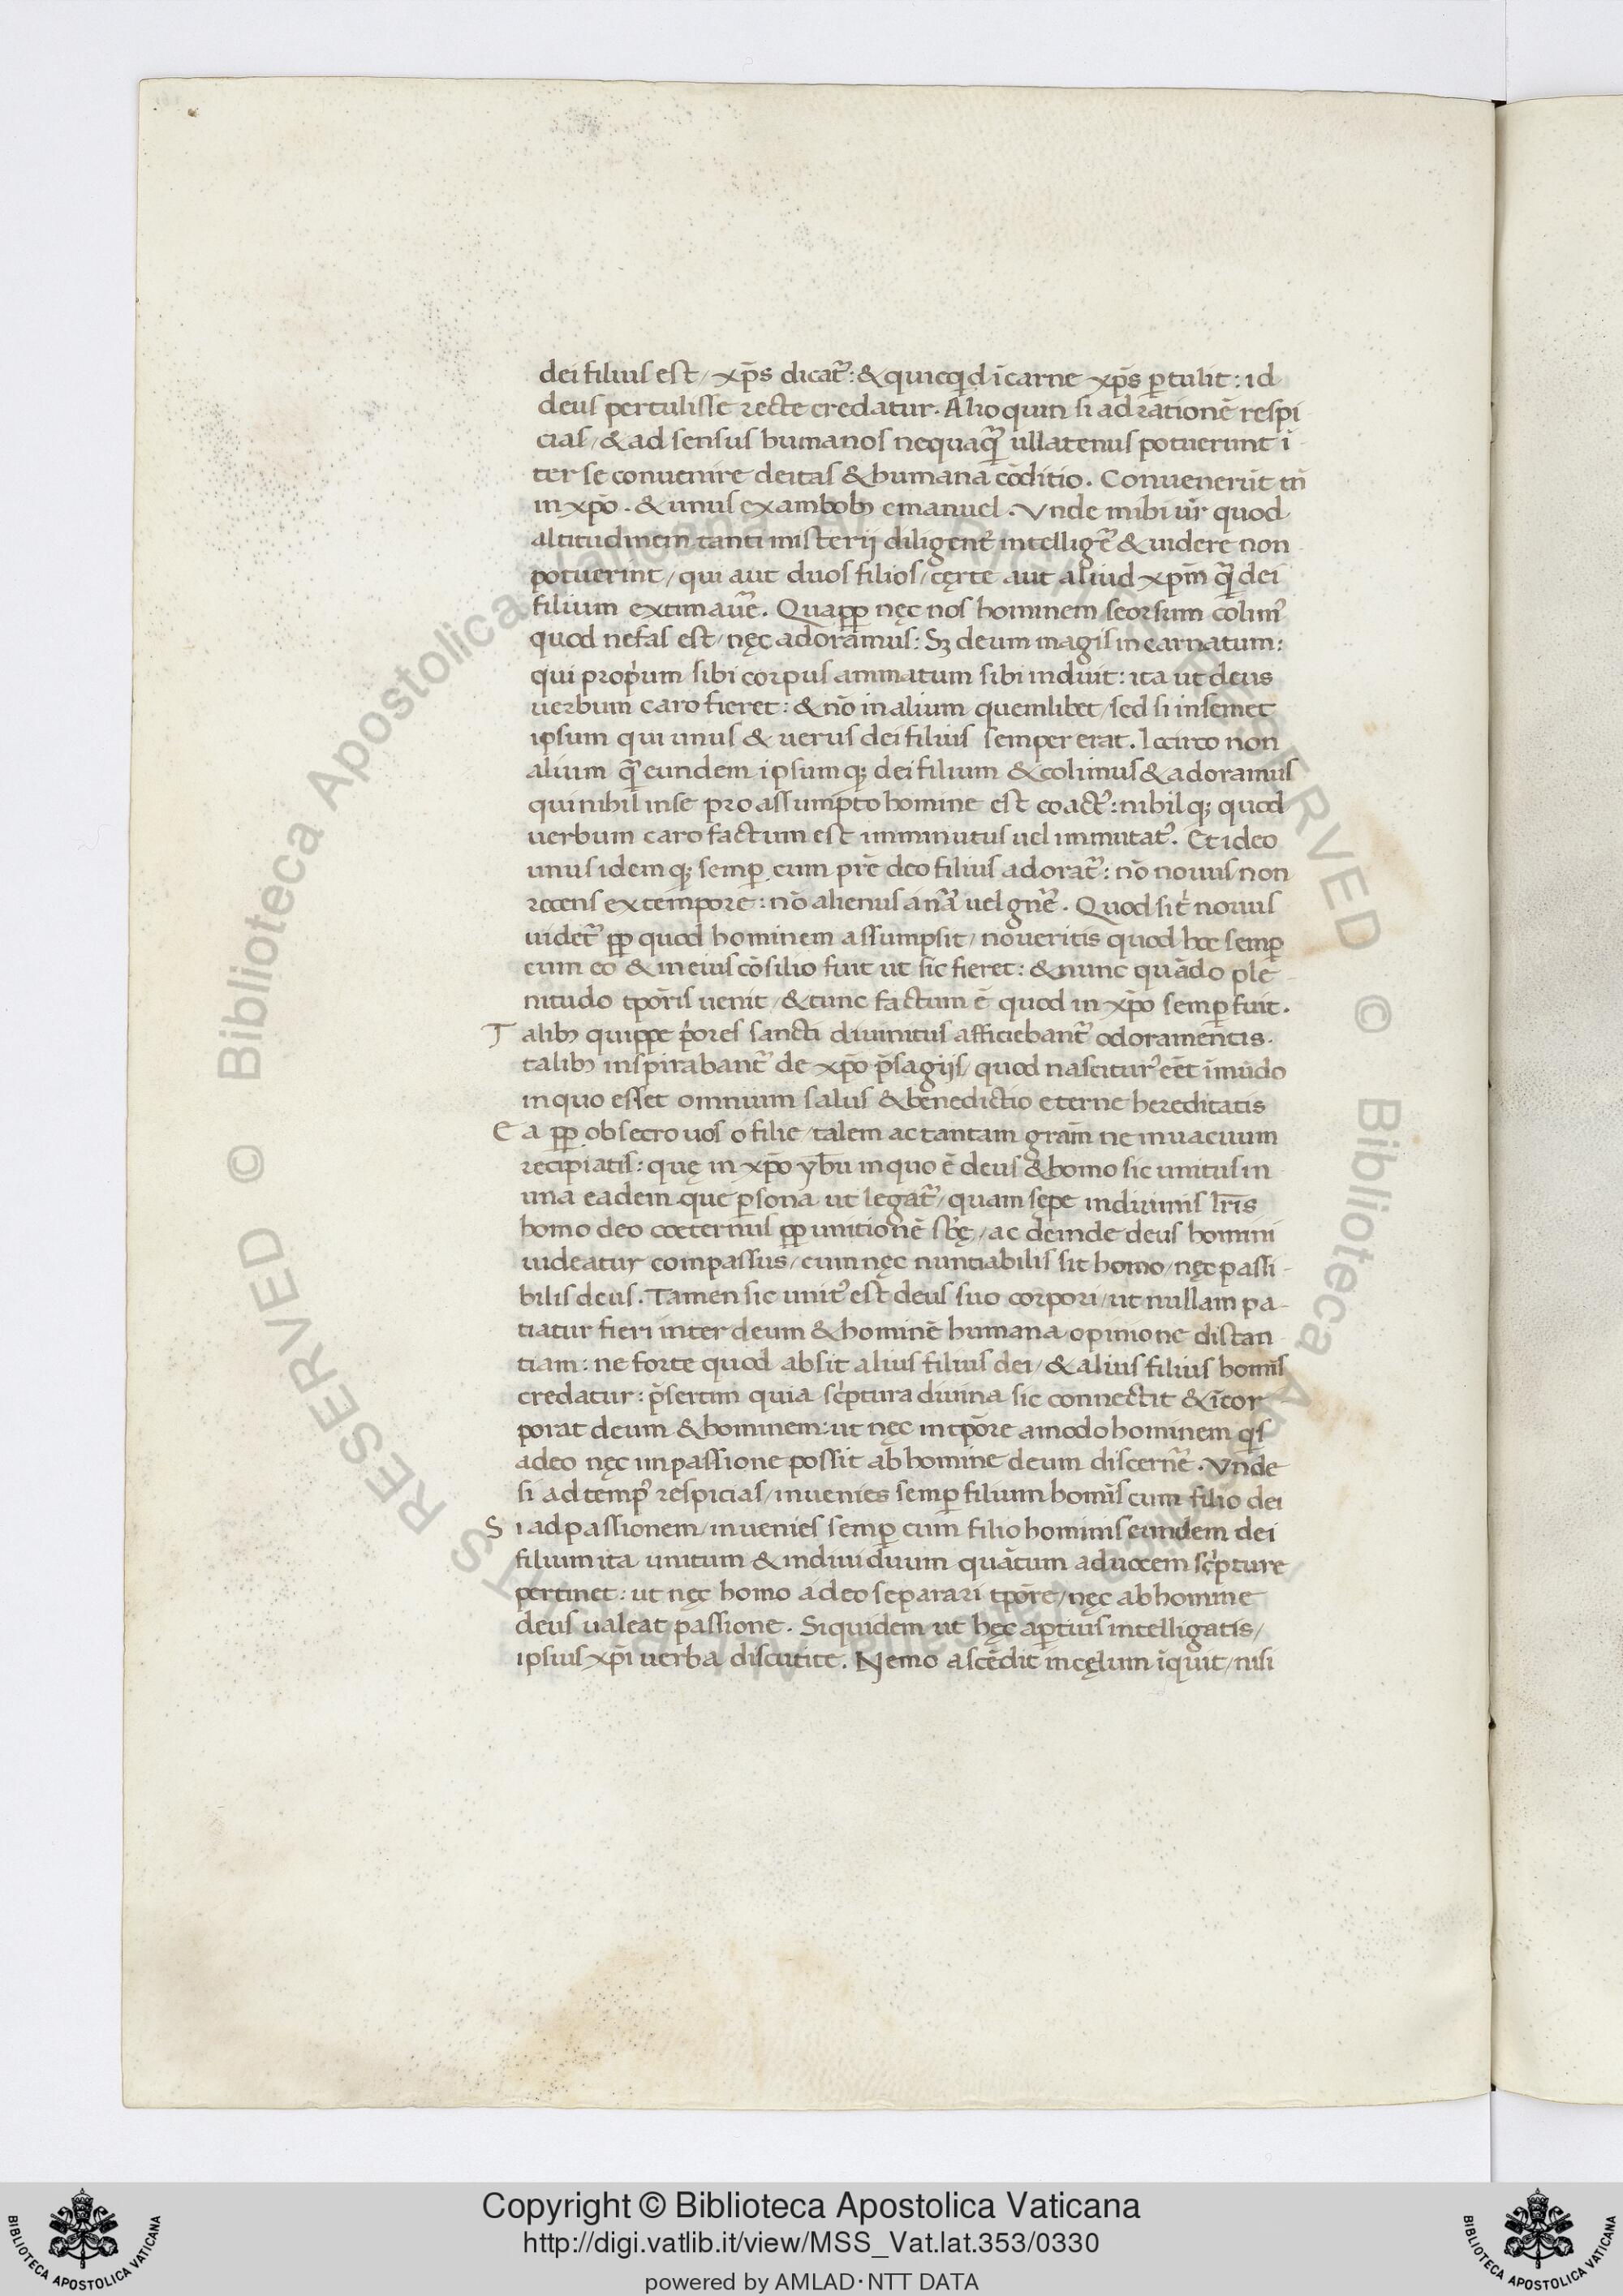 dei filius est / xp̄s dicat᷑ : & quicq̇d ī carne xp̄s ꝑtulit : id
deus pertulisse recte credatur . Alioquin si ad rationē respi
cias / & ad sensus humanos nequaq̃ ullatenus potuerunt ī
ter se convenire deitas & humana cōditio . Convenerūt tn̄
in xp̄o . & unus ex ambobꝫ emanuel . Vnde mihi ur̄ quod
altitudinem tanti misterij diligent᷑ intellige᷑ & uidere non
potuerint / qui aut duos filios / cęrte aut aliud xpm̄ q̃ dei
filium extimaue᷑ . Quapp̱ nęc nos hominem seorsum colim᷒
quod nefas est / nęc adoramus : Sꝫ deum magis incarnatum :
qui propium sibi corpus animatum sibi induit : ita ut deus
uerbum caro fieret : & nō in alium quemlibet / sed si insemet
ipsum qui unus & uerus dei filius semper erat . Iccirco non
alium q̃ eundem ipsumqꝫ dei filium & colimus & adoramus
qui nihil inse pro assumpto homine est coact᷒ : nihilqꝫ quod
uerbum caro factum est imminutus uel immutat᷒ . Et ideo
unus idemqꝫ semꝑ cum prē deo filius adorat᷑ : nō nouus / non
recens ex tempore : nō alienus a nr̄a uel gne᷑ . Quod sit᷒ nouus
uidet᷑ pp̱ quod hominem assumpsit / noueritis quod hoc semꝑ
cum eo & in eius cōsilio fuit ut sic fieret : & nunc quādo ple-
nitudo tp̄oris uenit / & tunc factum ē quod in xp̄o semꝑ fuit .
Talibꝫ quippe p̍ores sancti diuinitus afficiebant᷑ odoramentis .
talibꝫ inspirabant᷑ de xp̄o p̄sagijs / quod nascitur᷒ eēt ī mūdo
in quo esset omnium salus & benedictio eterne hereditatis
Ea pp̱ obsecro uos o filie / talem ac tantam gram̄ ne in uacuum
recipiatis : quę in xp̄o yh̄u in quo ē deus & homo sic unitus in
una eadem que ꝑsona ut legat᷑ / quam sępe in diuinis lr̄is
homo deo coeternus pp̱ unitionē sb̄ę / ac deinde deus homini
uideatur compassus / cum nęc nuntiabilis sit homo / nęc passi-
bilis deus . Tamen sic unit᷒ est deus suo corpori / ut nullam pa-
tiatur fieri inter deum & hominē humana opinione distan
tiam : ne forte quod absit alius filius dei / & alius filius homīs
credatur : p̄sertim quia sc̍ptura diuina sic connectit & īcor-
porat deum & hominem : ut nęc in tp̄ore amodo hominem q̍s
adeo nęc in passione possit ab homine deum discerne᷑ . Vnde
si ad temp᷒ respicias / inuenies semꝑ filium homīs cum filio dei
Si ad passionem / inuenies semꝑ cum filio hominis eundem dei
filium ita unitum & indiuiduum quātum ad uocem sc̍pture
pertinet : ut nęc homo a deo separari tp̄ore / nęc ab homine
deus ualeat passione . Siquidem ut hęc aꝑtius intelligatis /
ipsius xp̄i uerba discutite . Nemo ascēdit in cęlum īquit / nisi
Copyright © Biblioteca Apostolica Vaticana
http://digi.vatlib.it/view/MSS_Vat.lat.353/0330
powered by AMLAD·NTT DATA